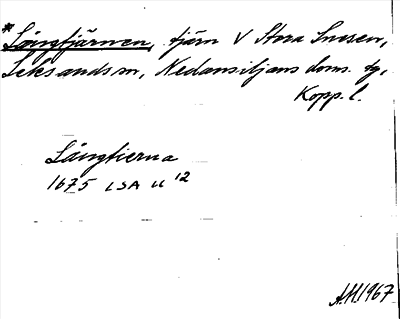 *Långtjärnen, tjärn V Stora Snesen,
Leksands sn, Nedansiljans doms. tg,
Kopp. l.
Långtierna
1675 LSA U 12
A.H. 1967